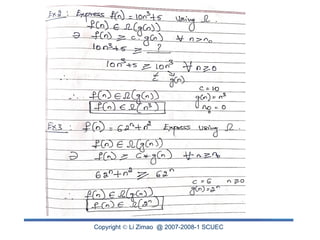 Ex2: Express f(n) = 10n³+5 using Ω.
f(n) ∈ Ω(g(n))
⇒ f(n) ≥ c·g(n) ∀ n>n₀
10n³+5 ≥ ?
10n³+5 ≥ 10n³ ∀ n≥0
c g(n)
c=10
g(n)=n³
n₀=0
∴ f(n) ∈ Ω(g(n))
f(n) ∈ Ω(n³)
Ex3: f(n) = 62ⁿ+n² Express using Ω.
f(n) ∈ Ω(g(n))
⇒ f(n) ≥ c*g(n) ∀ n≥n₀
62ⁿ+n² ≥ 62ⁿ
c=6 n≥0
g(n)=2ⁿ
∴ f(n) ∈ Ω(g(n))
f(n) ∈ Ω(2ⁿ)
Copyright © Li Zimao @ 2007-2008-1 SCUEC